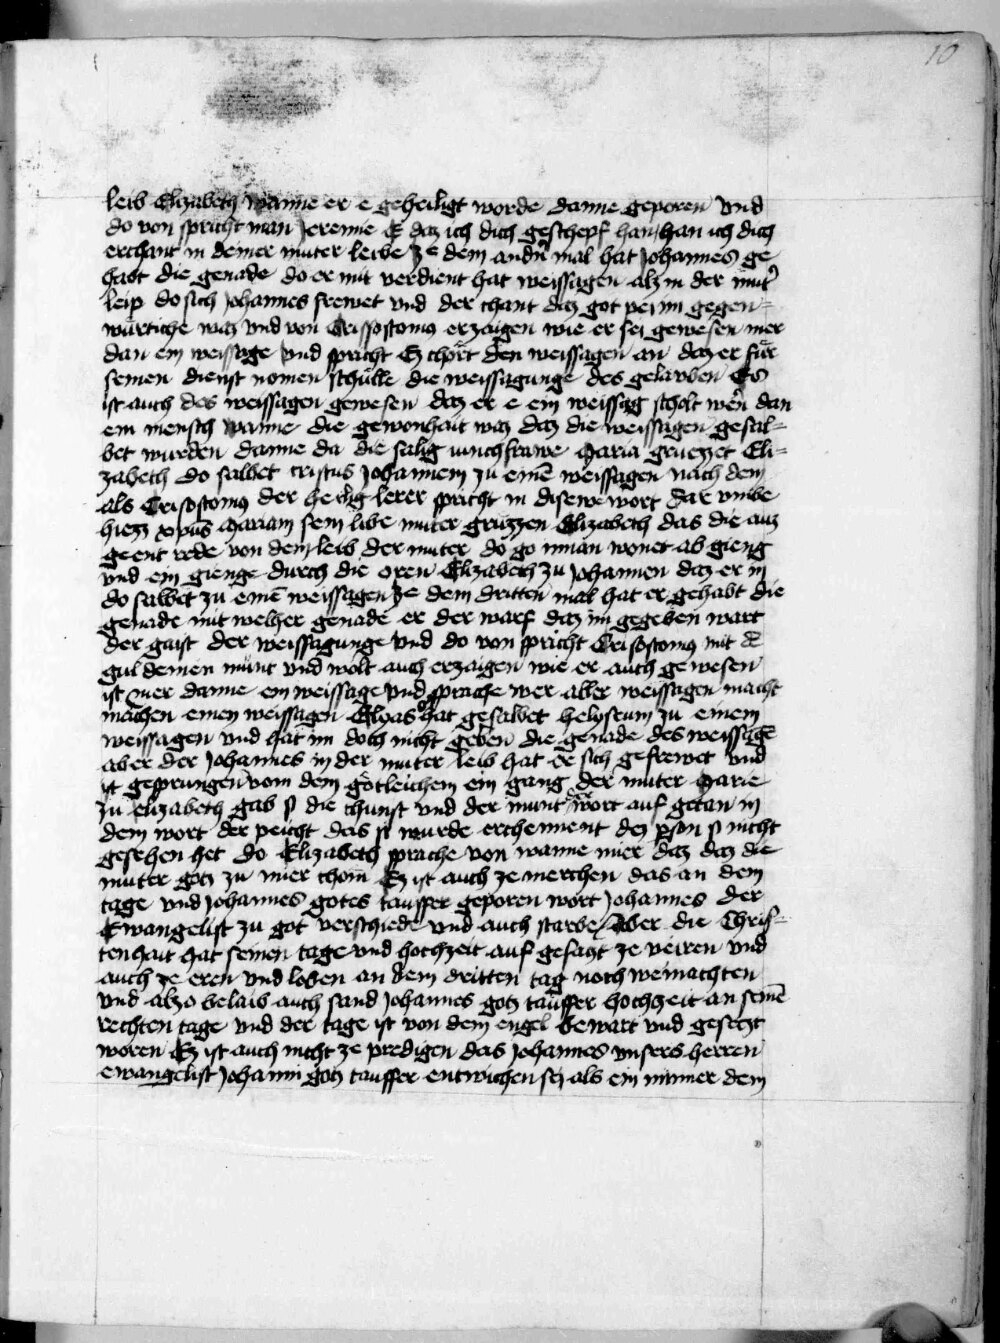 10
leib Elizabeth wanne er e geheiligt worde danne geporen vnd
do von spricht man Jeremie E daz ich dich geschepf han han ich dich
erchant in deiner muter leibe ze dem andn̄ mal hat Johannes ge
habt die genade do er mit verdient hat weissagen alz in der mut̄
leip do sich Johannes frewet vnd der chant daz got pei im gegen=
würtiche waz vnd von Crissostomus erzaigen wie er sei gewesen mer
dan ein weissage vnd spricht Ez chort den weissagen an daz er für
seinen dienst nomen schulle die weissagunge des gelauben Es
ist auch des weissagen gewesen daz er e ein weissag scholt wērn dan
ein mensch wanne die gewonhait waz daz die weissagen gesal=
bet wurden danne da die salig iunchfrawe Maria gruezzet Eli=
zabeth do salbet cristus Johannem zu einē weissagen nach dem
als Crisostomus der heilig lerer spricht in disew wort dar vmbe
hiezz xpūs Mariam sein libe muter gruzzen Elizabeth das die auz
geent rede von dem leib der muter do go innan wonet ab gieng
vnd ein gienge durch die oren Elizabeth zu Johannen daz er in
do salbet zu einē weissagen ze dem dritten mal hat er gehabt die
genade mit welher genade er der warf daz im gegeben wart
der gaist der weissagunge vnd do von spricht Crisostomus mit dē
gul deinen munt vnd wolt auch erzaigen wie er auch gewesen
ist mer danne ein weissage vnd sprache wer aller weissagen macht
machen einen weissagen Elyas hat gesalbet helyseum zu einem
weissagen vnd hat im doch nicht geben die genade des weissagē
aber der Johannes in der muter leib hat er sich gefrewet vnd
ist gesprungen vom dem gotleichem ein gang der muter Marie
zu Elizabeth gab si die chunst vnd der munt wort auf getan in
dem wort der peicht das si wurde erchennent dez pson si nicht
gesehen het do Elizabeth sprache von wanne mier daz daz die
muter gotz zu mier chom Ez ist auch ze merchen das an dem
tage vnd Johannes gotes tauffer geporen wort Johannes der
Ewangelist zu got verschiede vnd auch starbe Aber die Chris=
tenhait hat seinen tage vnd hochzeit auf gesatzt ze veiren vnd
auch ze eren vnd loben an dem dritten tag noch weinachten
vnd alzo belaib auch sand Johannes gotz tauffer hochzeit an seinē
rechten tage vnd der tage ist von dem engel bewart vnd gesetzt
woren Ez ist auch nicht ze predigen das Johannes vnsers herren
ewangelist Johanni gotz tauffer entwichen sei als ein minner dem